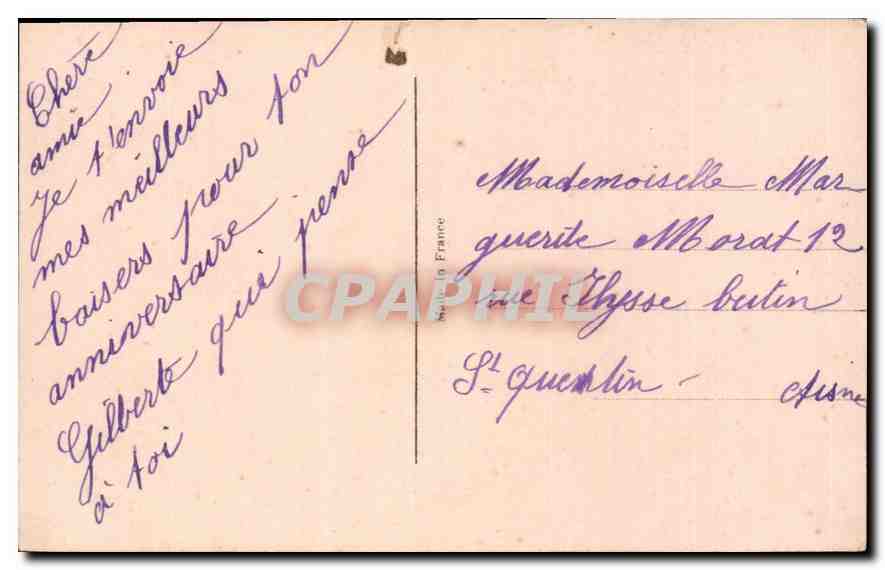 Chere
amie
Je t'envoie
mes meilleurs
baisers pour ton
anniversaire
Gilberte qui pense
à toi
Made in France
CPAPHIL
Mademoiselle Mar
guerite Morat 12
rue Ulysse butin
St Quentin - Aisne